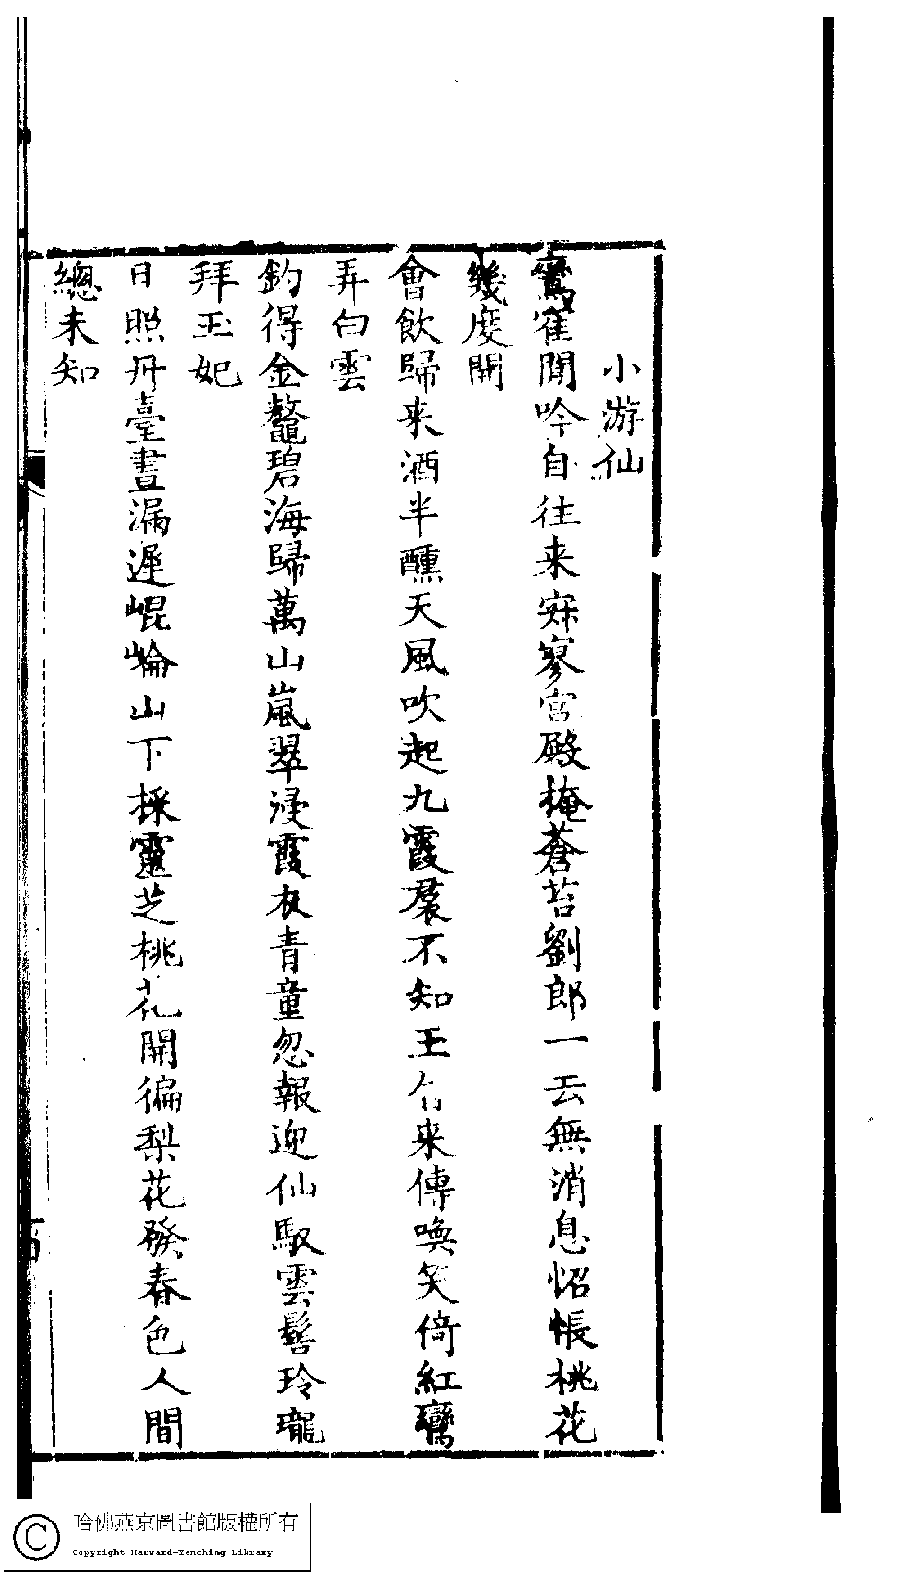 小游仙
鸞寉閒吟自往来寀寥宮殿掩蒼苔劉郎一去無消息怊悵桃花
幾度開
會飲歸来酒半醺天風吹起九霞裠不知王勻来傳喚笑倚紅鸞
弄白雲
釣得金鰲碧海歸萬山嵐翠浸霞衣青童忽報迎仙馭雲髻玲瓏
拜玉妃
日照丹臺晝漏遲崐崘山下採靈芝桃花開徧梨花發春色人間
總未知
哈佛燕京圖書館版權所有
Copyright Harvard-Yenching Library